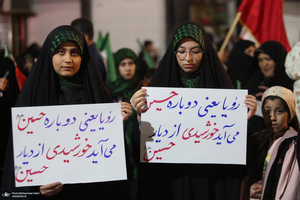 رؤیا یعنی دوباره حسین
می آید خورشیدی از دیار
حسین
رؤیا یعنی دوباره حسین
می آید خورشیدی از دیار
حسین